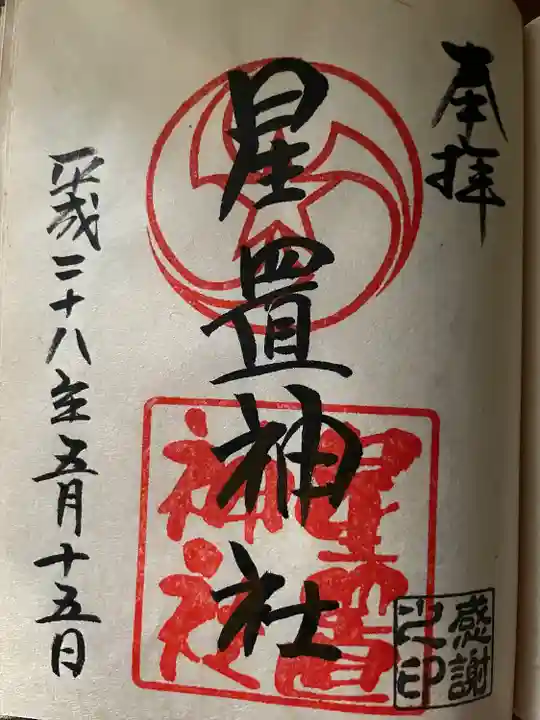 奉拝
星置神社
星置神社
平成二十八年五月十五日
感謝之印